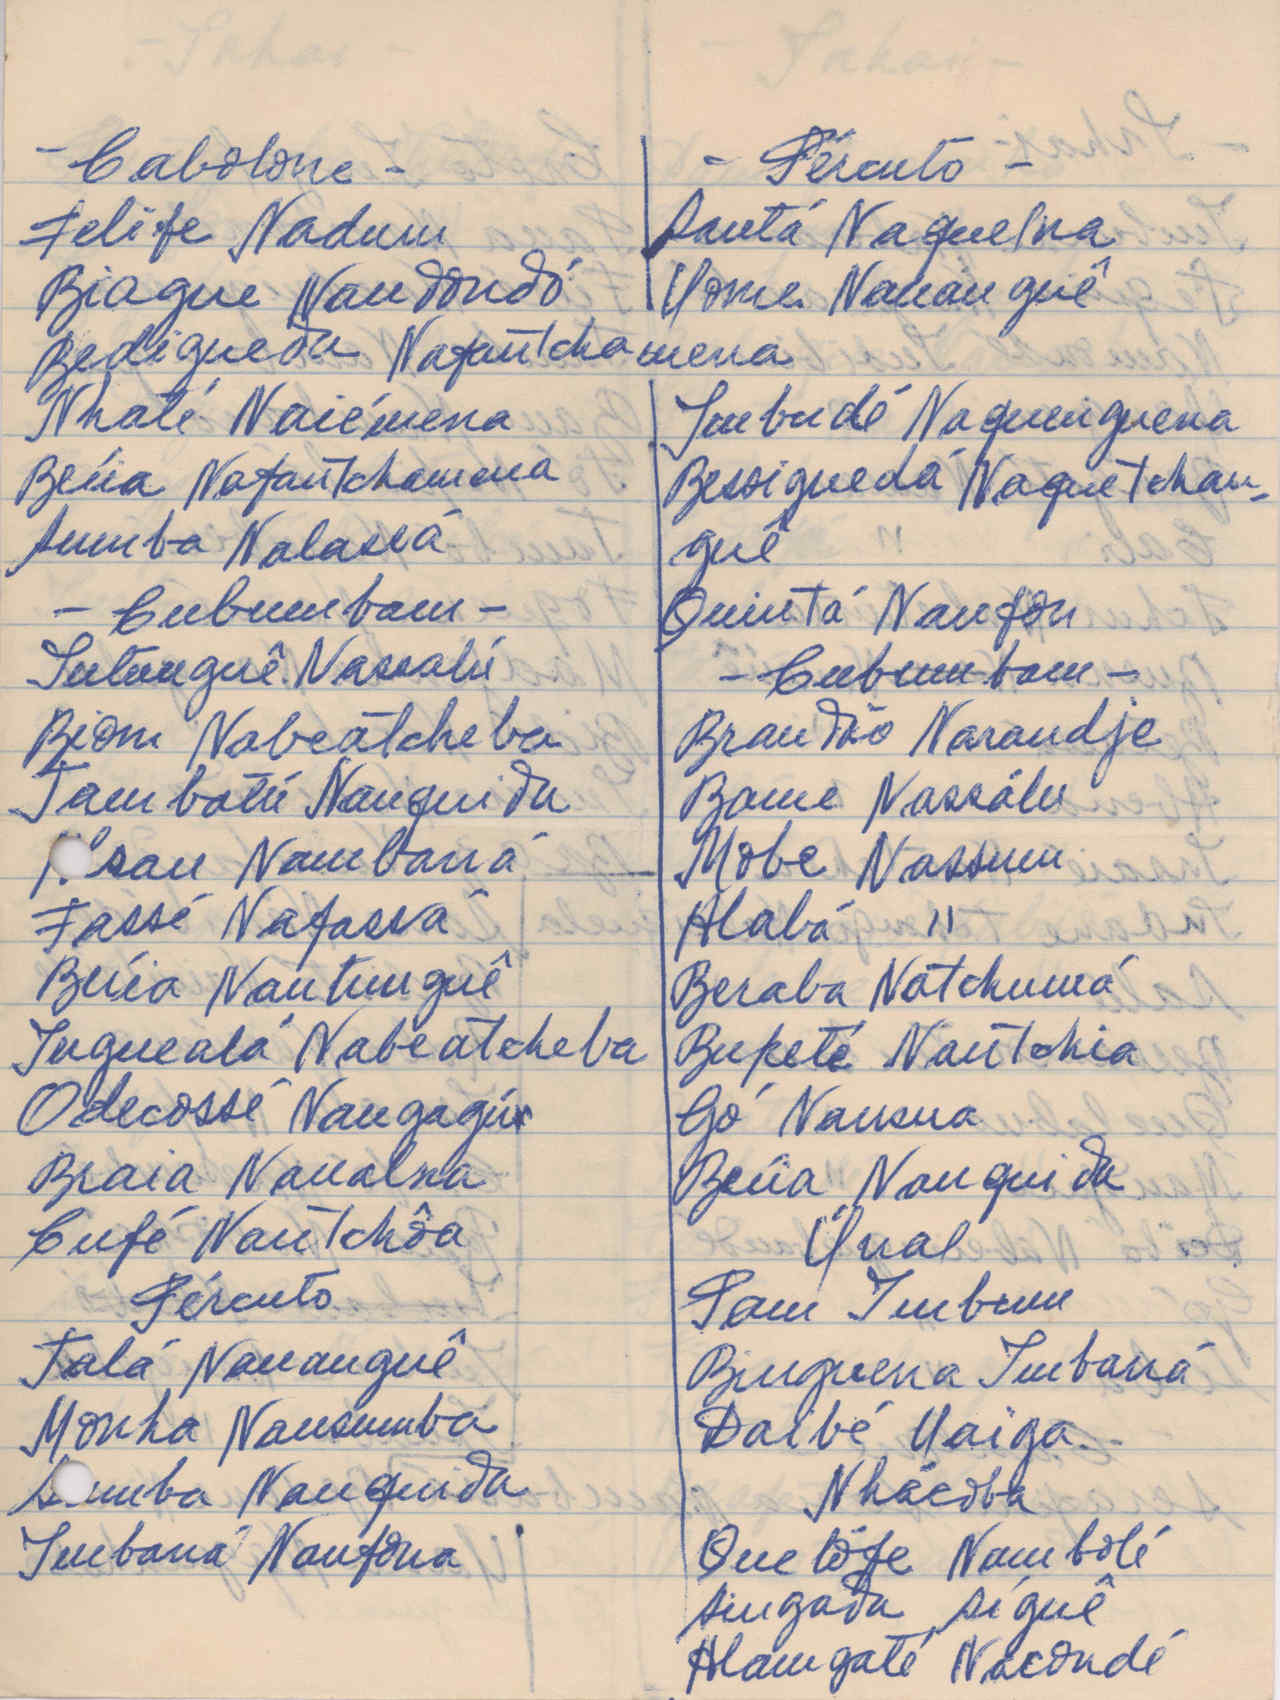 - Cabolone -
Felife Nadum
Biague Nandondó
Bedigueda Nafantchamena
Nhaté Naiémena
Beúa Nafantchamena
Sumba Nalassá
- Cubumbam -
Intunguê Nassalú
Biom Nabeatcheba
Tambatú Nanguida
Nambaná
Fassé Nafassá
Beúa Nantunguê
Ingueala Nabeatcheba
Odecossé Nangagú
Braia Nanalna
Cufé Nantchôa
Fércuto
Talá Nananguê
Monha Nansumba
Sumba Nanguida
Imbaná Nanfona
- Fércuto -
Santá Naquelna
Uome Nananguê
Imbudé Naquenguena
Bessiguedá Naquetchan-
guê
Quintá Nanfon
- Cubumbam -
Brandão Narandje
Bame Nassálu
Mobe Nassum
Alabá "
Beraba Natchumá
Bupeté Nantchia
Gó Nansua
Beúa Nanguida
Unal
Pam Imbum
Binguena Imbaná
Daibé Uaiga
Nhácoba
Quelófe Nambolé
Singada Siguê
Alamgaté Nacondé